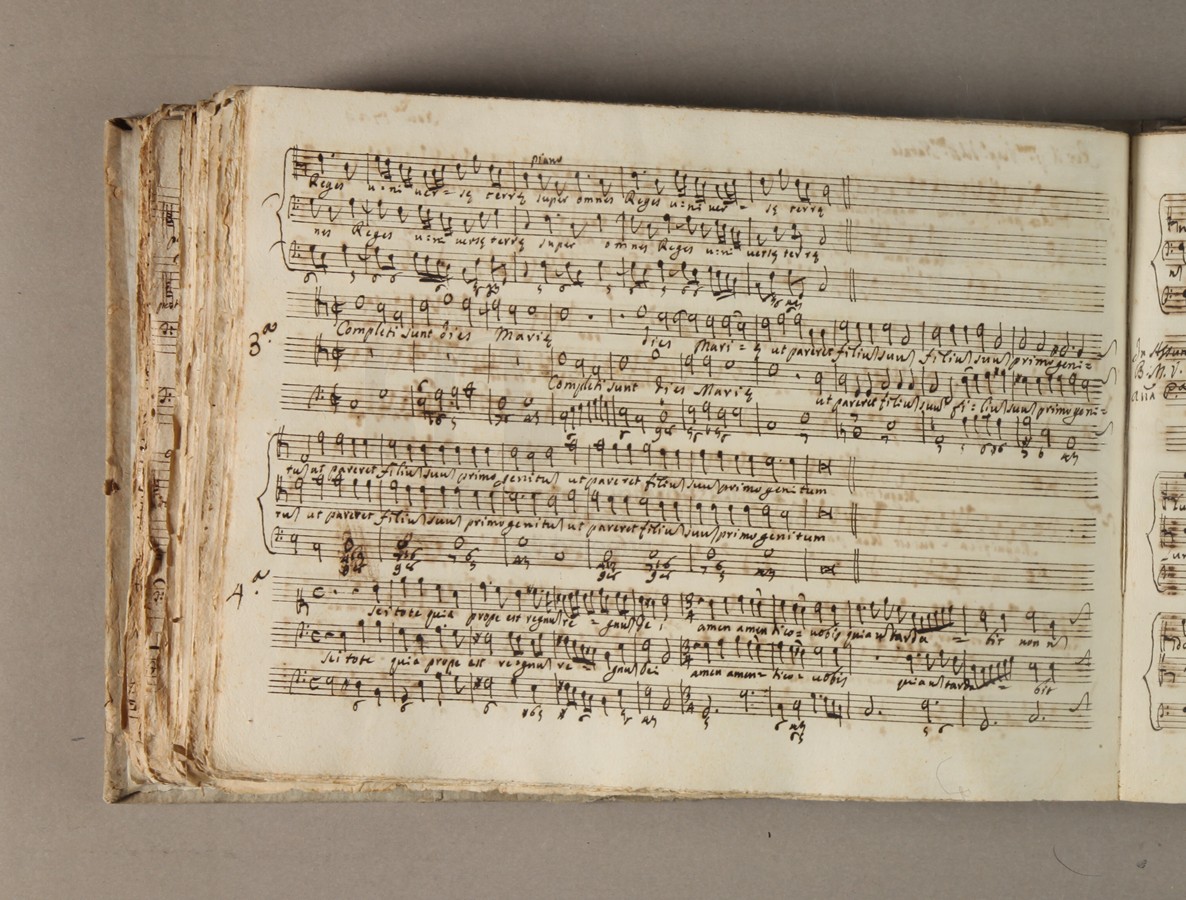 piano
Reges u=ni ver = sę terrę super omnes Reges u=ni ver - sę terrę
nes Reges u=ni versę terrę super omnes Reges u=ni versę terrę
3.ª
Completi sunt dies Marię dies Mari = ę ut pareret filiu suu filiu suu primogeni=
Completi sunt dies Marię ut pareret filiu suu fi = liu suu primogeni=
tu ut pareret filiu suu primo genitu ut pareret filiu suu primogenitum
tu ut pareret filiu suu primogenitu ut pareret filiu suu primogenitum
4.ª
scitote quia prope est regnu re = gnu Dei amen amen dico= vobis quia n tarda = bit non
scitote quia prope est regnu re = gnu Dei amen amen= dico= vobis quia n tarda = bit
B. M. V.